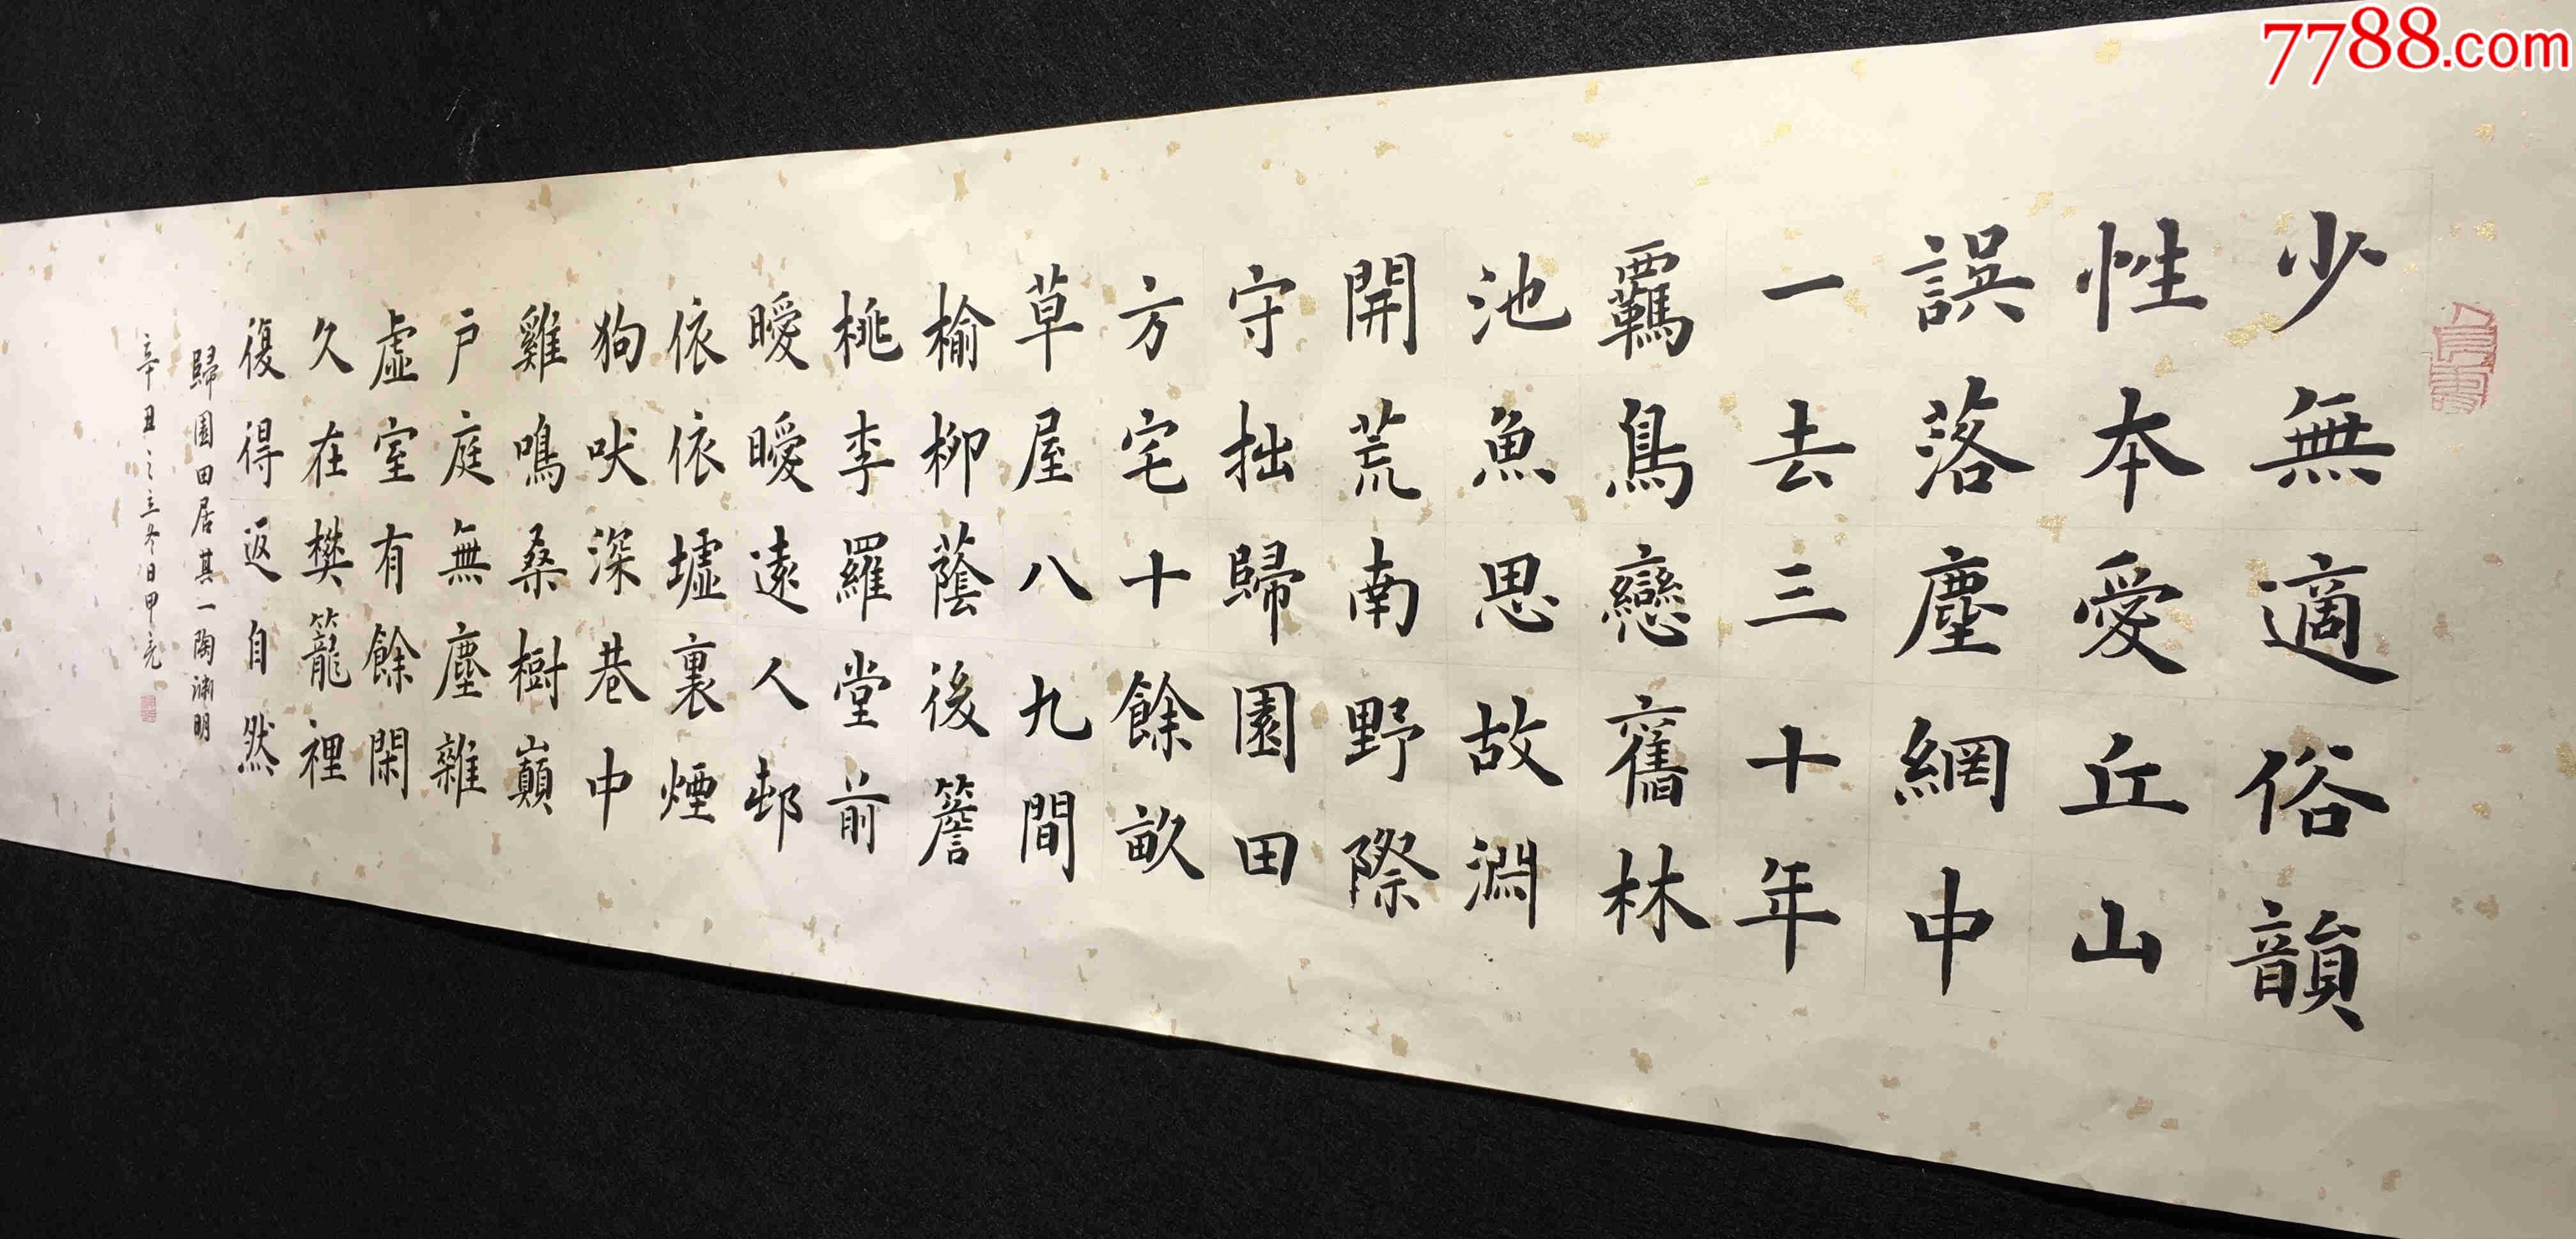 少無適俗韻
性本愛丘山
誤落塵網中
一去三十年
羈鳥戀舊林
池魚思故淵
開荒南野際
守拙歸園田
方宅十餘畝
草屋八九間
榆柳蔭後簷
桃李羅堂前
曖曖遠人邨
依依墟裏煙
狗吠深巷中
雞鳴桑樹巔
戶庭無塵雜
虛室有餘閑
久在樊籠裡
復得返自然
歸園田居其一陶淵明
辛丑之立冬日甲元
7788.com